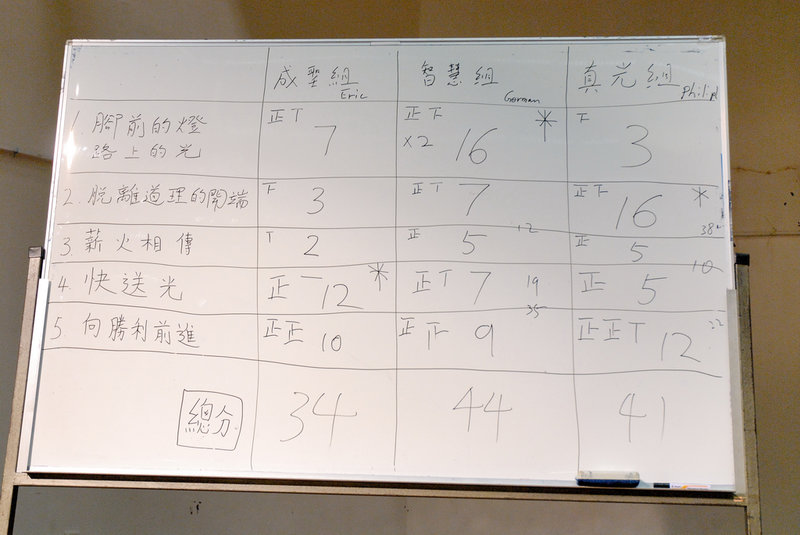 成聖組
Eric
智慧組
German
真光組
1. 腳前的燈
路上的光
正丅
7
正下
×2 16
*
下
3
2. 脫離道理的開端
下 3
正丅 7
正下 16
*
3. 薪火相傳
丅 2
正 5
12
正 5
38
10
4. 快送光
正一 12
*
正丅 7
19
正 5
5. 向勝利前進
正正 10
正 9
35
正正丅 12
22
總分
34
44
41